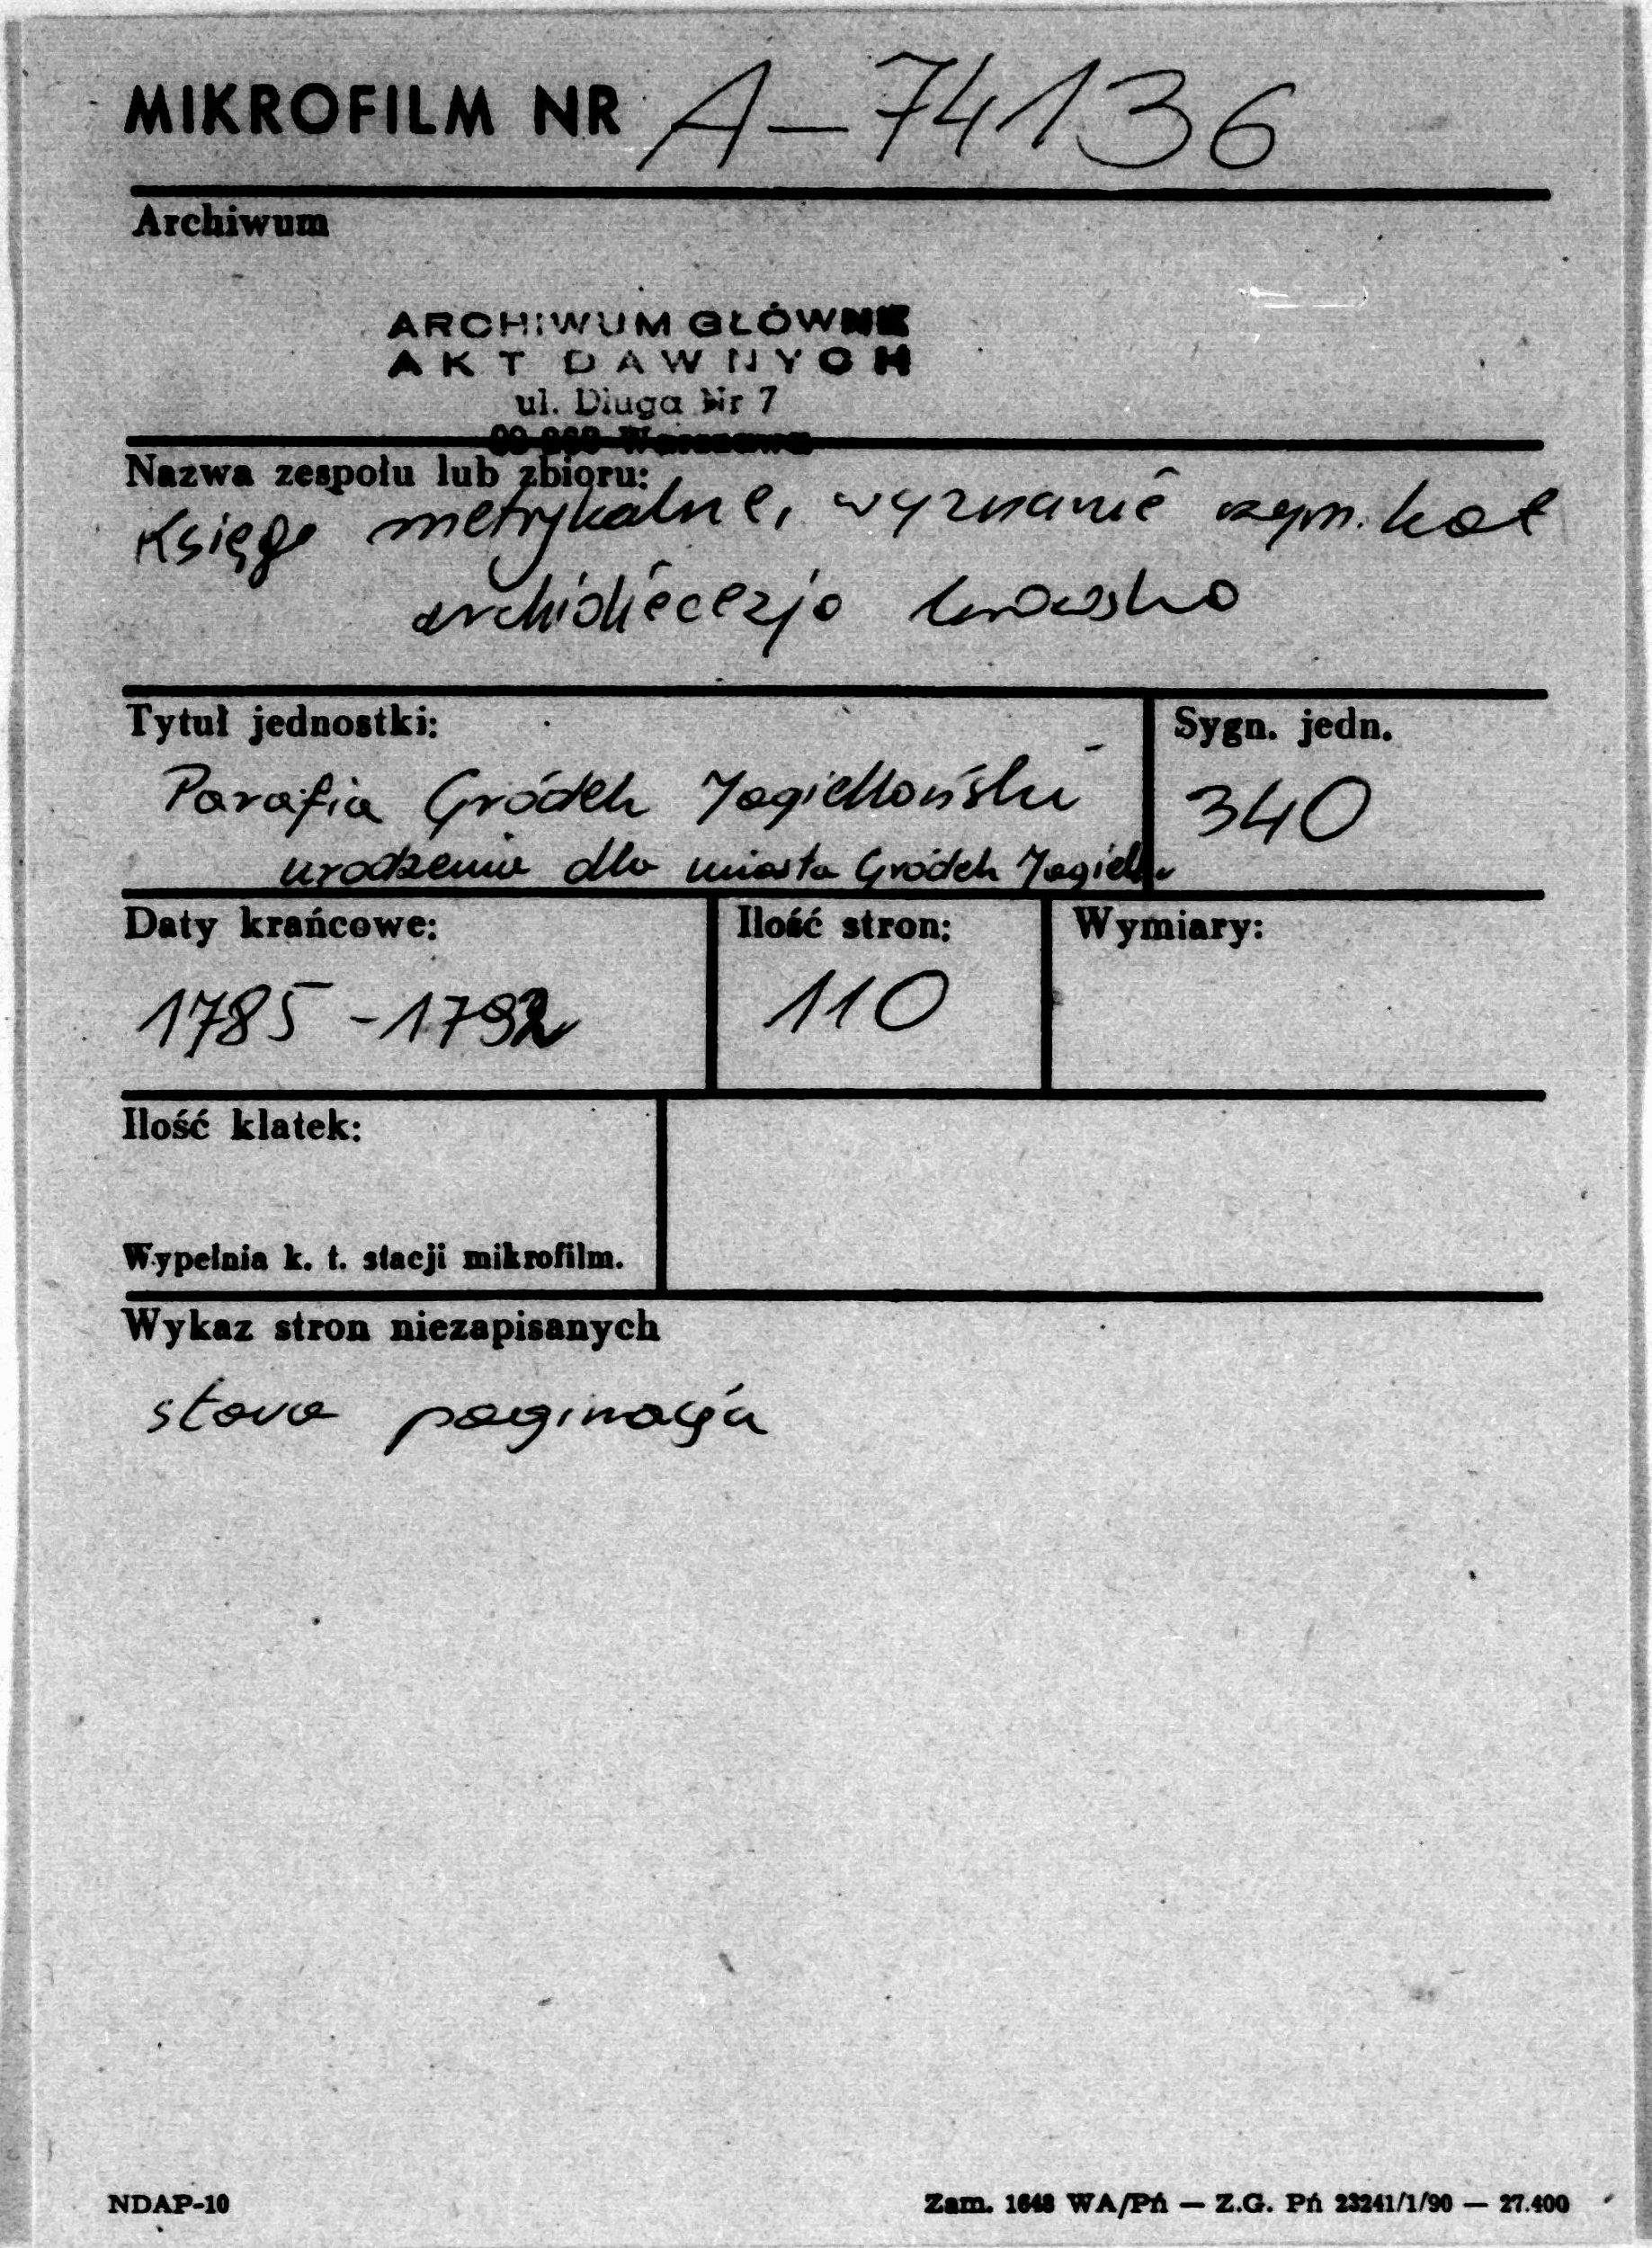 MIKROFILM NR A-74136
Archiwum
ARCHIWUM GŁÓWNE
AKT DAWNYCH
ul. Długa Nr 7
Warszawa
Nazwa zespołu lub zbioru:
Księgi metrykalne, wyznanie rzym. kat
archidiecezja lwowska
Tytuł jednostki:
Sygn. jedn.
Parafia Gródek Jagielloński
340
urodzenia dla miasta Gródek Jagiell.
Daty krańcowe:
Ilość stron:
Wymiary:
1785 - 1792
110
Ilość klatek:
Wypełnia k. t. stacji mikrofilm.
Wykaz stron niezapisanych
stara paginacja
NDAP-10
Zam. 1648 WA/Pń — Z.G. Pń 23241/1/90 — 27.400